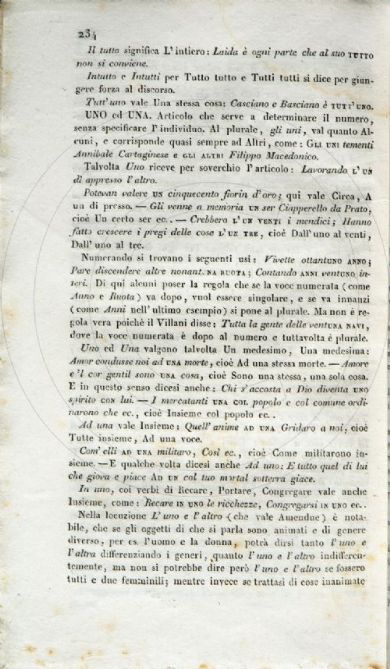 234
Il tutto significa L' intiero: Laida è ogni parte che al suo TUTTO
non si conviene.
Intutto e Intutti per Tutto tutto e Tutti tutti si dice per giun-
gere forza al discorso.
Tutt' uno vale Una stessa cosa: Casciano e Barciano è TUTT' UNO.
UNO ed UNA. Articolo che serve a determinare il numero,
senza specificare l' individuo. Al plurale, gli uni, val quanto Al-
cuni, e corrisponde quasi sempre ad Altri, come: GLI UNI tementi
Annibale Cartaginese e GLI ALTRI Filippo Macedonico.
Talvolta Uno riceve per soverchio l' articolo: Lavorando L' UN
dì appresso l' altro.
Potevan valere UN cinquecento fiorin d' oro; qui vale Circa, A
un di presso. — Gli venne a memoria UN ser Ciapperello da Prato,
cioè Un certo ser ec. — Crebbero L' UN VENTI i mendici; Hanno
fatto crescere i pregi delle cose L' UN TRE, cioè Dall' uno al venti,
Dall' uno al tre.
Numerando si trovano i seguenti usi: Vivette ottantUNO ANNO;
Pare discendere altre nonant. NA RUOTA; Contando ANNI ventUNO in-
teri. Di qui alcuni poser la regola che se la voce numerata (come
Anno e Ruota) va dopo, vuol essere singolare, e se va innanzi
(come Anni nell' ultimo esempio) si pone al plurale. Ma non è re-
gola vera poichè il Villani disse: Tutta la gente delle ventUNA NAVI,
dove la voce numerata è dopo al numero e tuttavolta è plurale.
Uno ed Una valgono talvolta Un medesimo, Una medesima:
Amor condusse noi ad UNA morte, cioè Ad una stessa morte. — Amore
e 'l cor gentil sono UNA COSA, cioè Sono una stessa, una sola cosa.
E in questo senso dicesi anche: Chi s' accosta a Dio diventa UNO
spirito con lui. — I mercatanti UNA COL popolo e col comune ordi-
narono che ec., cioè Insieme col popolo ec.
Ad una vale Insieme: Quell' anime AD UNA Gridaro a noi; cioè
Tutte insieme, Ad una voce.
Com' elli AD UNA militaro, Così ec., cioè Come militarono in-
sieme. — E qualche volta dicesi anche Ad uno: E tutto quel di lui
che giova e piace AD UN col tuo mortal sotterra giace.
In uno, coi verbi di Recare, Portare, Congregare vale anche
Insieme, come: Recare IN UNO le ricchezze, Congregarsi IN UNO ec.
Nella locuzione L' uno e l' altro (che vale Amendue) è nota-
bile, che se gli oggetti di che si parla sono animati e di genere
diverso, per es. l' uomo e la donna, potrà dirsi tanto l' uno e
l' altra differenziando i generi, quanto l' uno e l' altro indifferen-
temente, ma non si potrebbe dire però l' uno e l' altro se fossero
tutti e due femminili; mentre invece se trattasi di cose inanimate